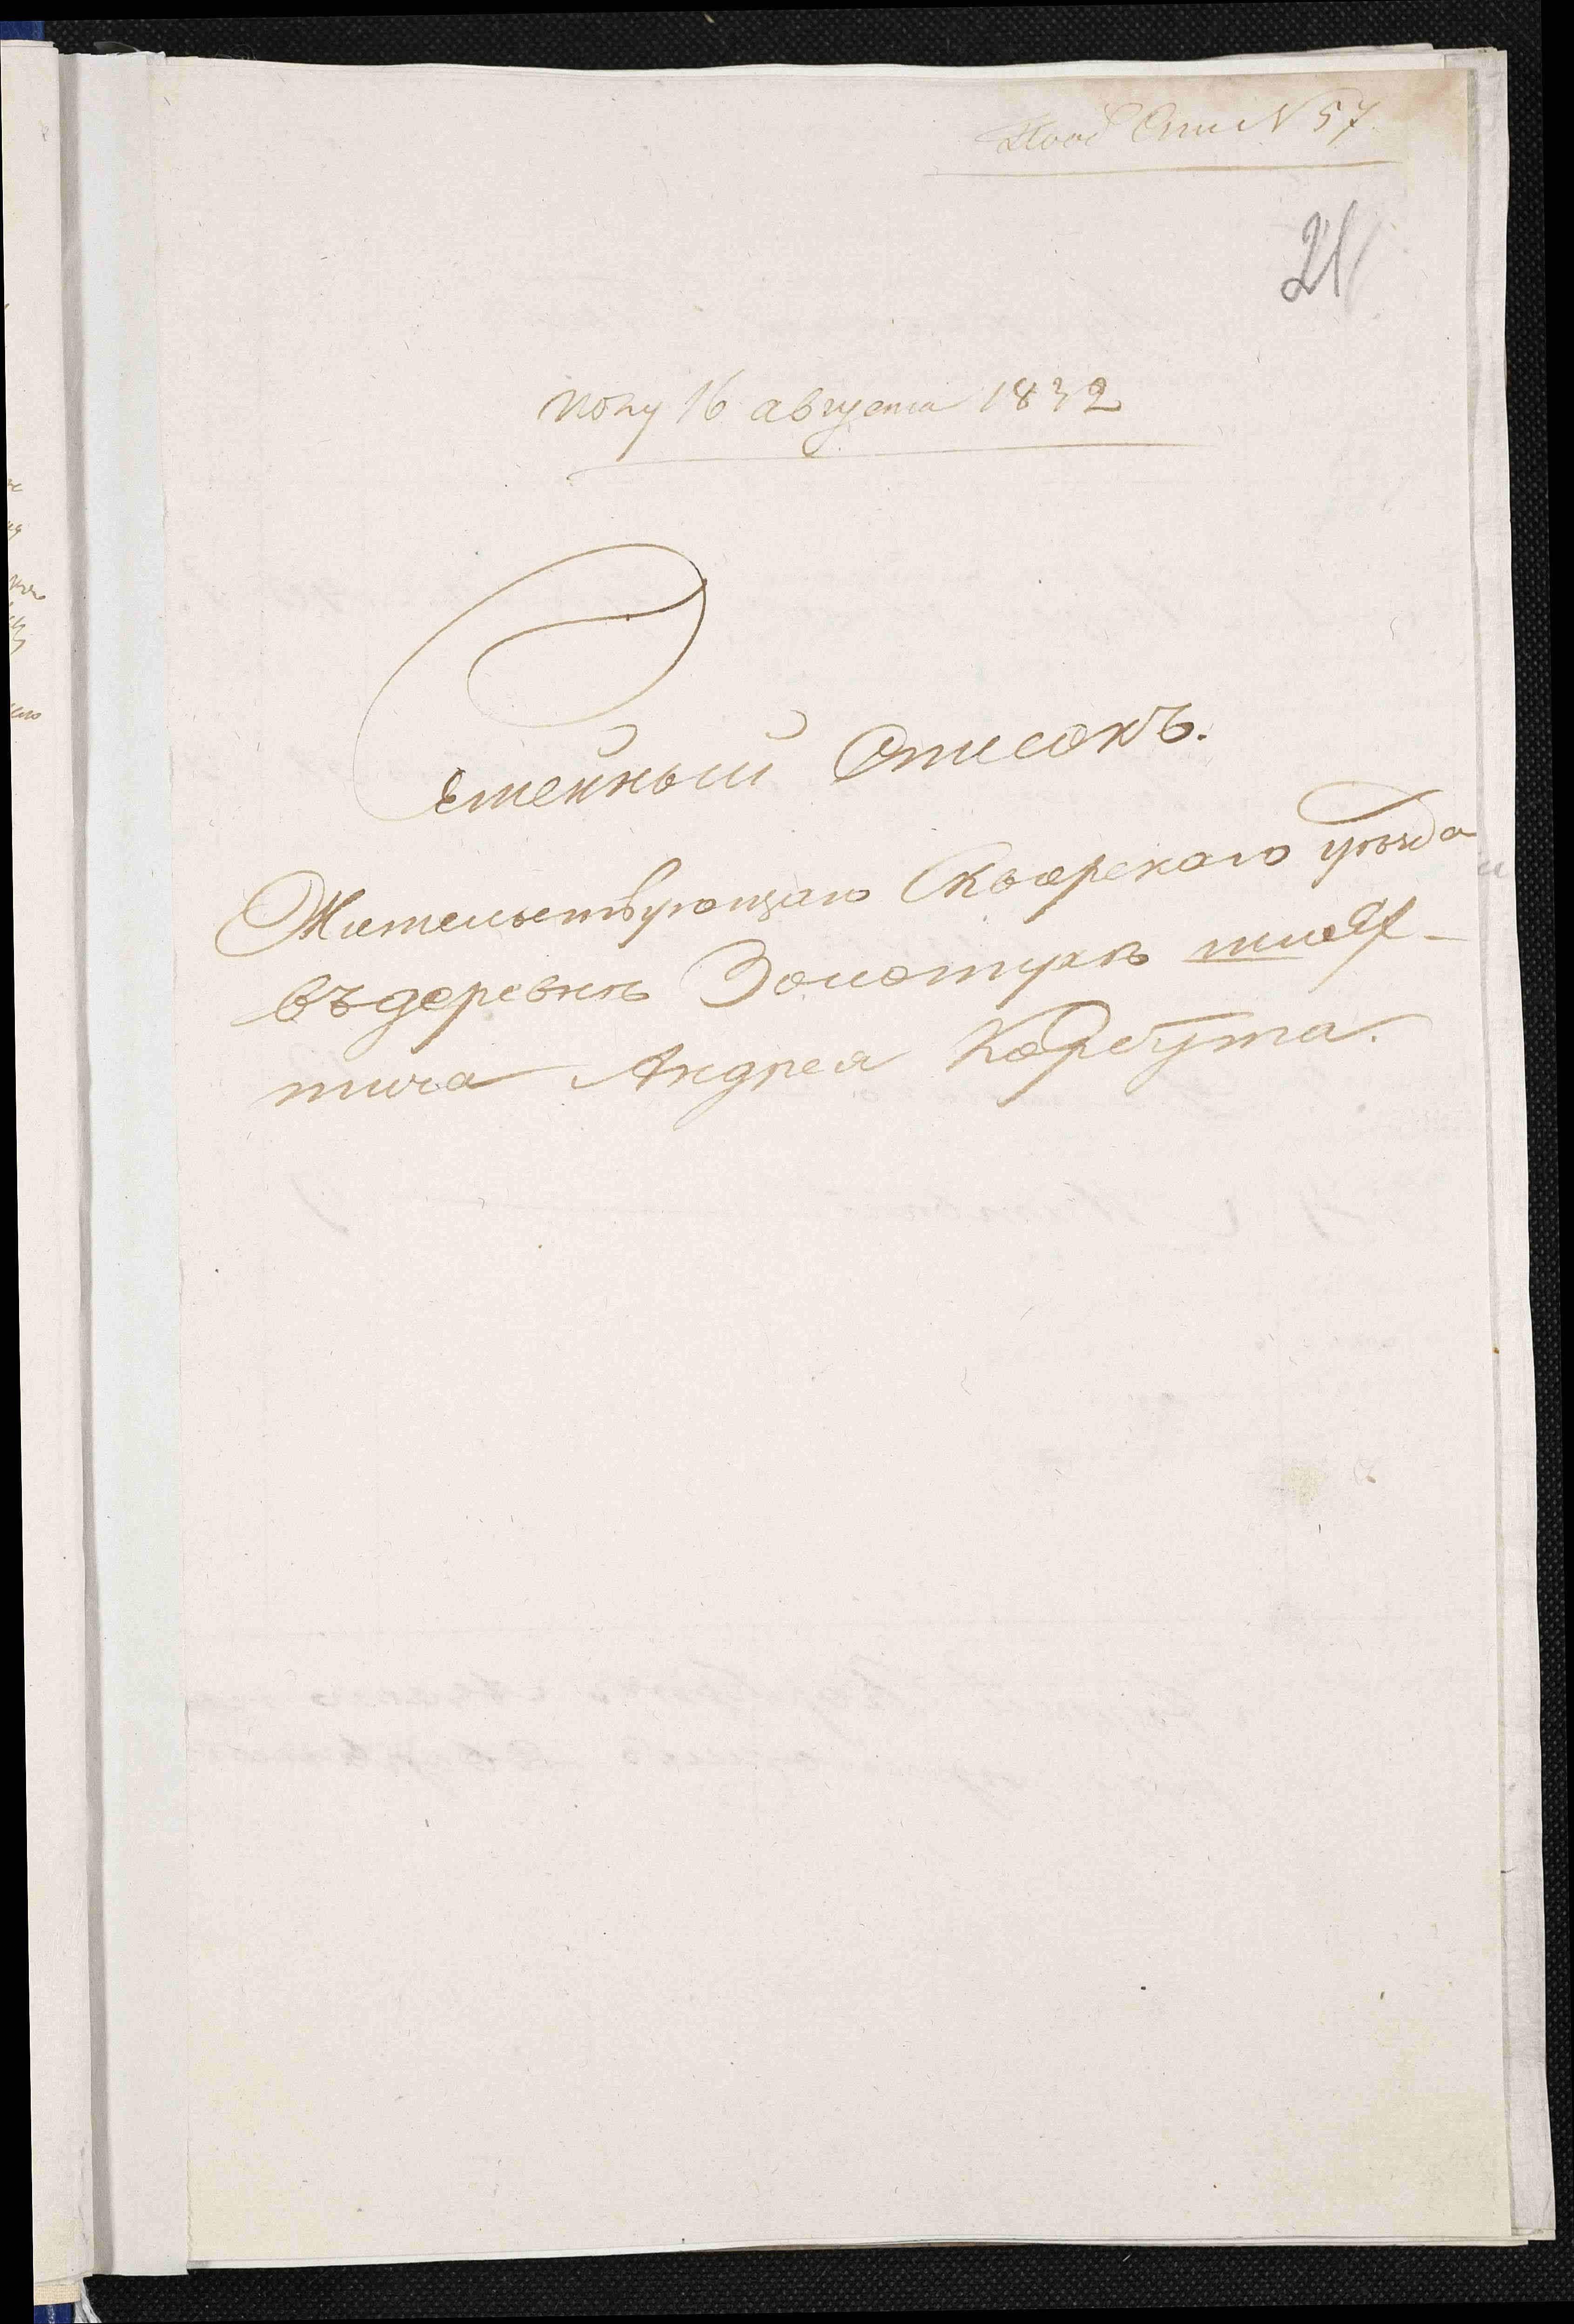 № 57
21
пону 16 августа 1832
Семейный Списокъ.
Жительствующаго Сквирскаго уѣзда
въ деревнѣ Золотухѣ шлях-
тича Андрея Корбута.